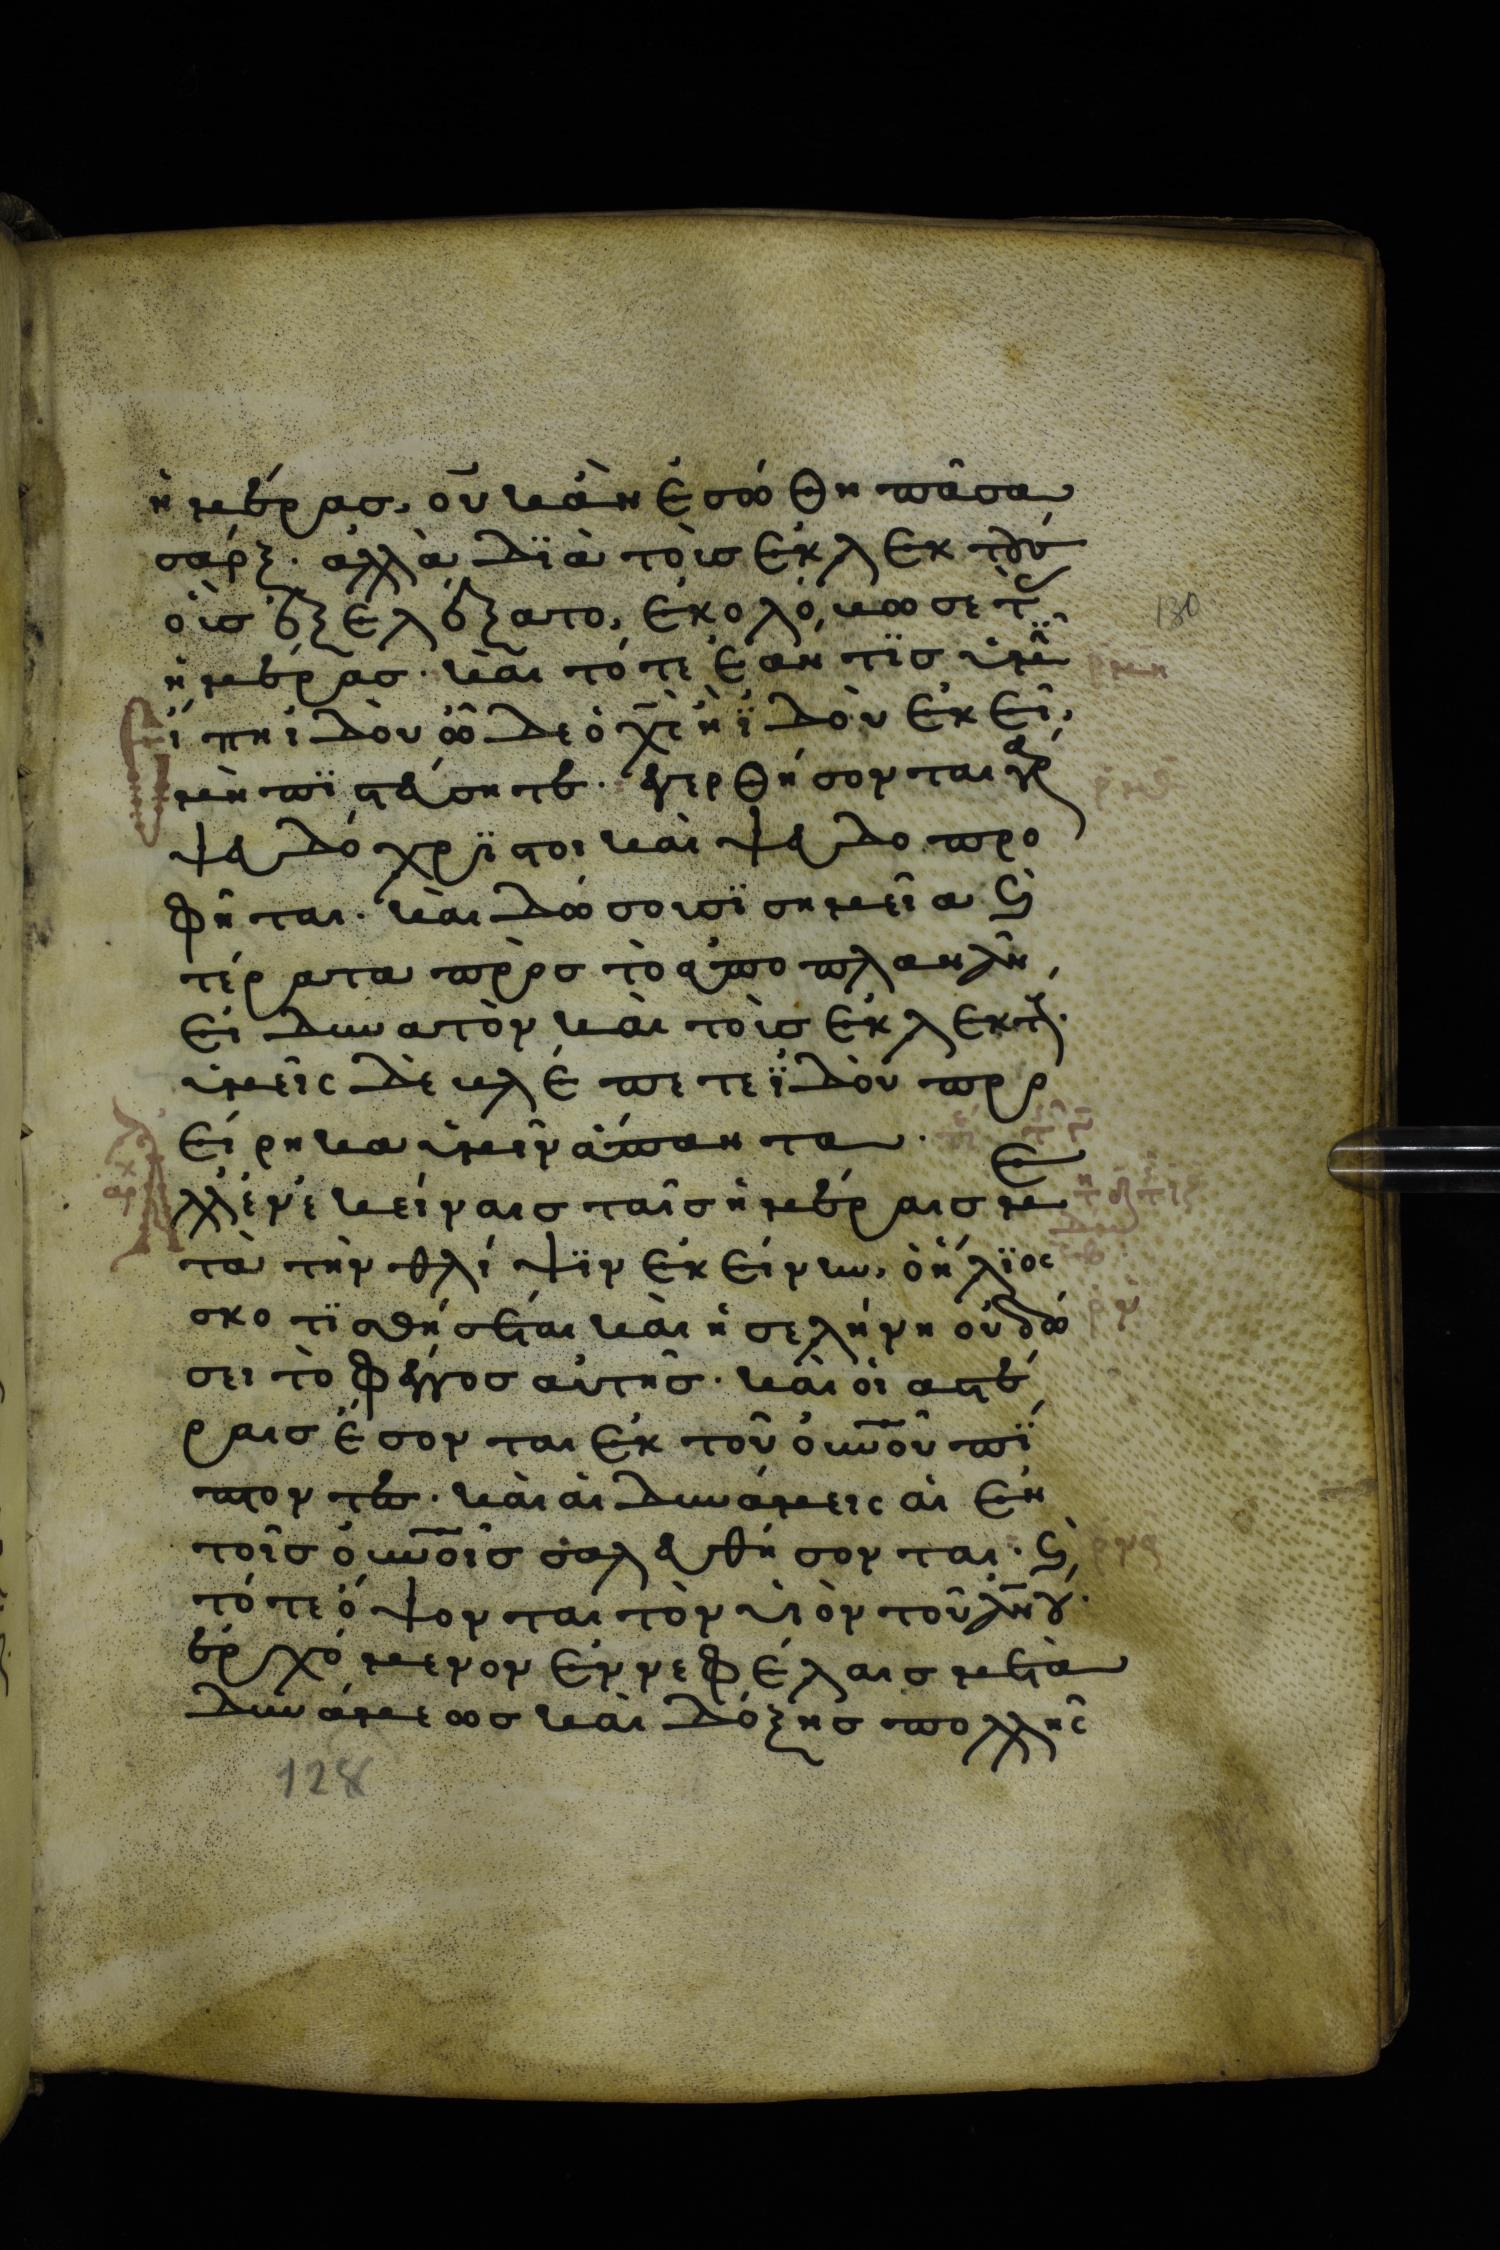 ἡμέρας, οὐκ ἂν ἐσώθη πᾶσα
σάρξ. ἀλλὰ δϊὰ τοὺς ἐκλεκτοὺς
οὓς ἐξελέξατο, ἐκολόβωσε τ(ὰς)
ἡμέρας. καὶ τότε ἐάν τϊς ὑμῖν
εἴπη ἰδοὺ ὧδε ὁ χς ἢ ἰδοὺ ἐκεῖ,
μὴ πϊστεύσητε. ἐγερθήσονται γὰρ
ψευδόχρϊστοι καὶ ψευδοπρο
φῆται. καὶ δώσουσϊ σημεῖα καὶ
τέρατα πρὸς τὸ ἀποπλανᾶν,
εἰ δυνατὸν καὶ τοὺς ἐκλεκτούς.
ὑμεῖς δὲ βλέπετε ἰδοὺ προ
είρηκα ὑμῖν ἅπαντα.
ἀλλ' ἐν ἐκείναις ταῖς ἡμέραις με
τὰ τὴν θλίψϊν ἐκείνην, ὁ ἥλϊος
σκοτϊσθήσεται καὶ ἡ σελήνη οὐ δώ
σει τὸ φέγγος αὐτῆς. καὶ οἱ ἀστέ
ραις ἔσονται ἐκ τοῦ οὐνοῦ πί
πτοντες. καὶ αἱ δυνάμεις αἱ ἐν
τοῖς οὐνοῖς σαλευθήσονται. καὶ
τότε ὄψονται τὸν υἱὸν τοῦ ἀνου
ἐρχόμενον ἐν νεφέλαις μετὰ
δυνάμεως καὶ δόξης πολλῆς
130
ρμη
ρμθ
ρν
ρνα
128